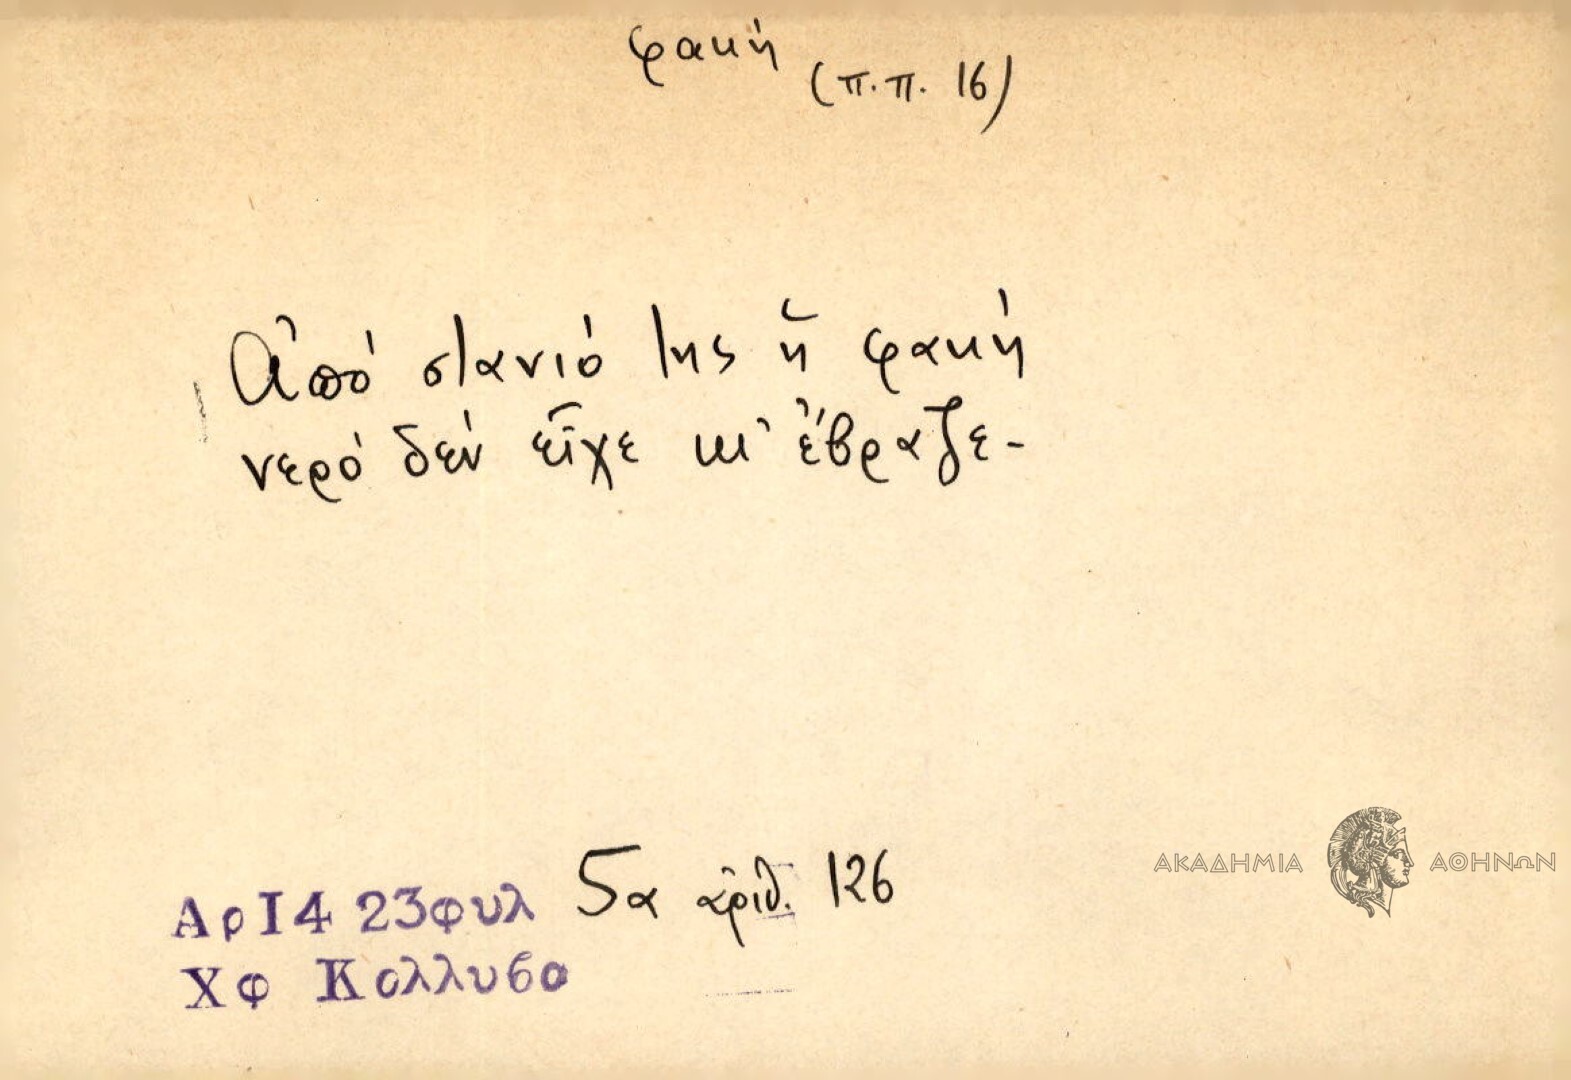 φακή
(π.π. 16)
Ἀπό στανιό της ἡ φακή
νερό δέν εἶχε κι' ἔβραζε-
Αρ 14 23 φυλ 5α ἀριθ. 126
Χφ Κολλυβα
ΑΚΑΔΗΜΙΑ ΑΘΗΝΩΝ